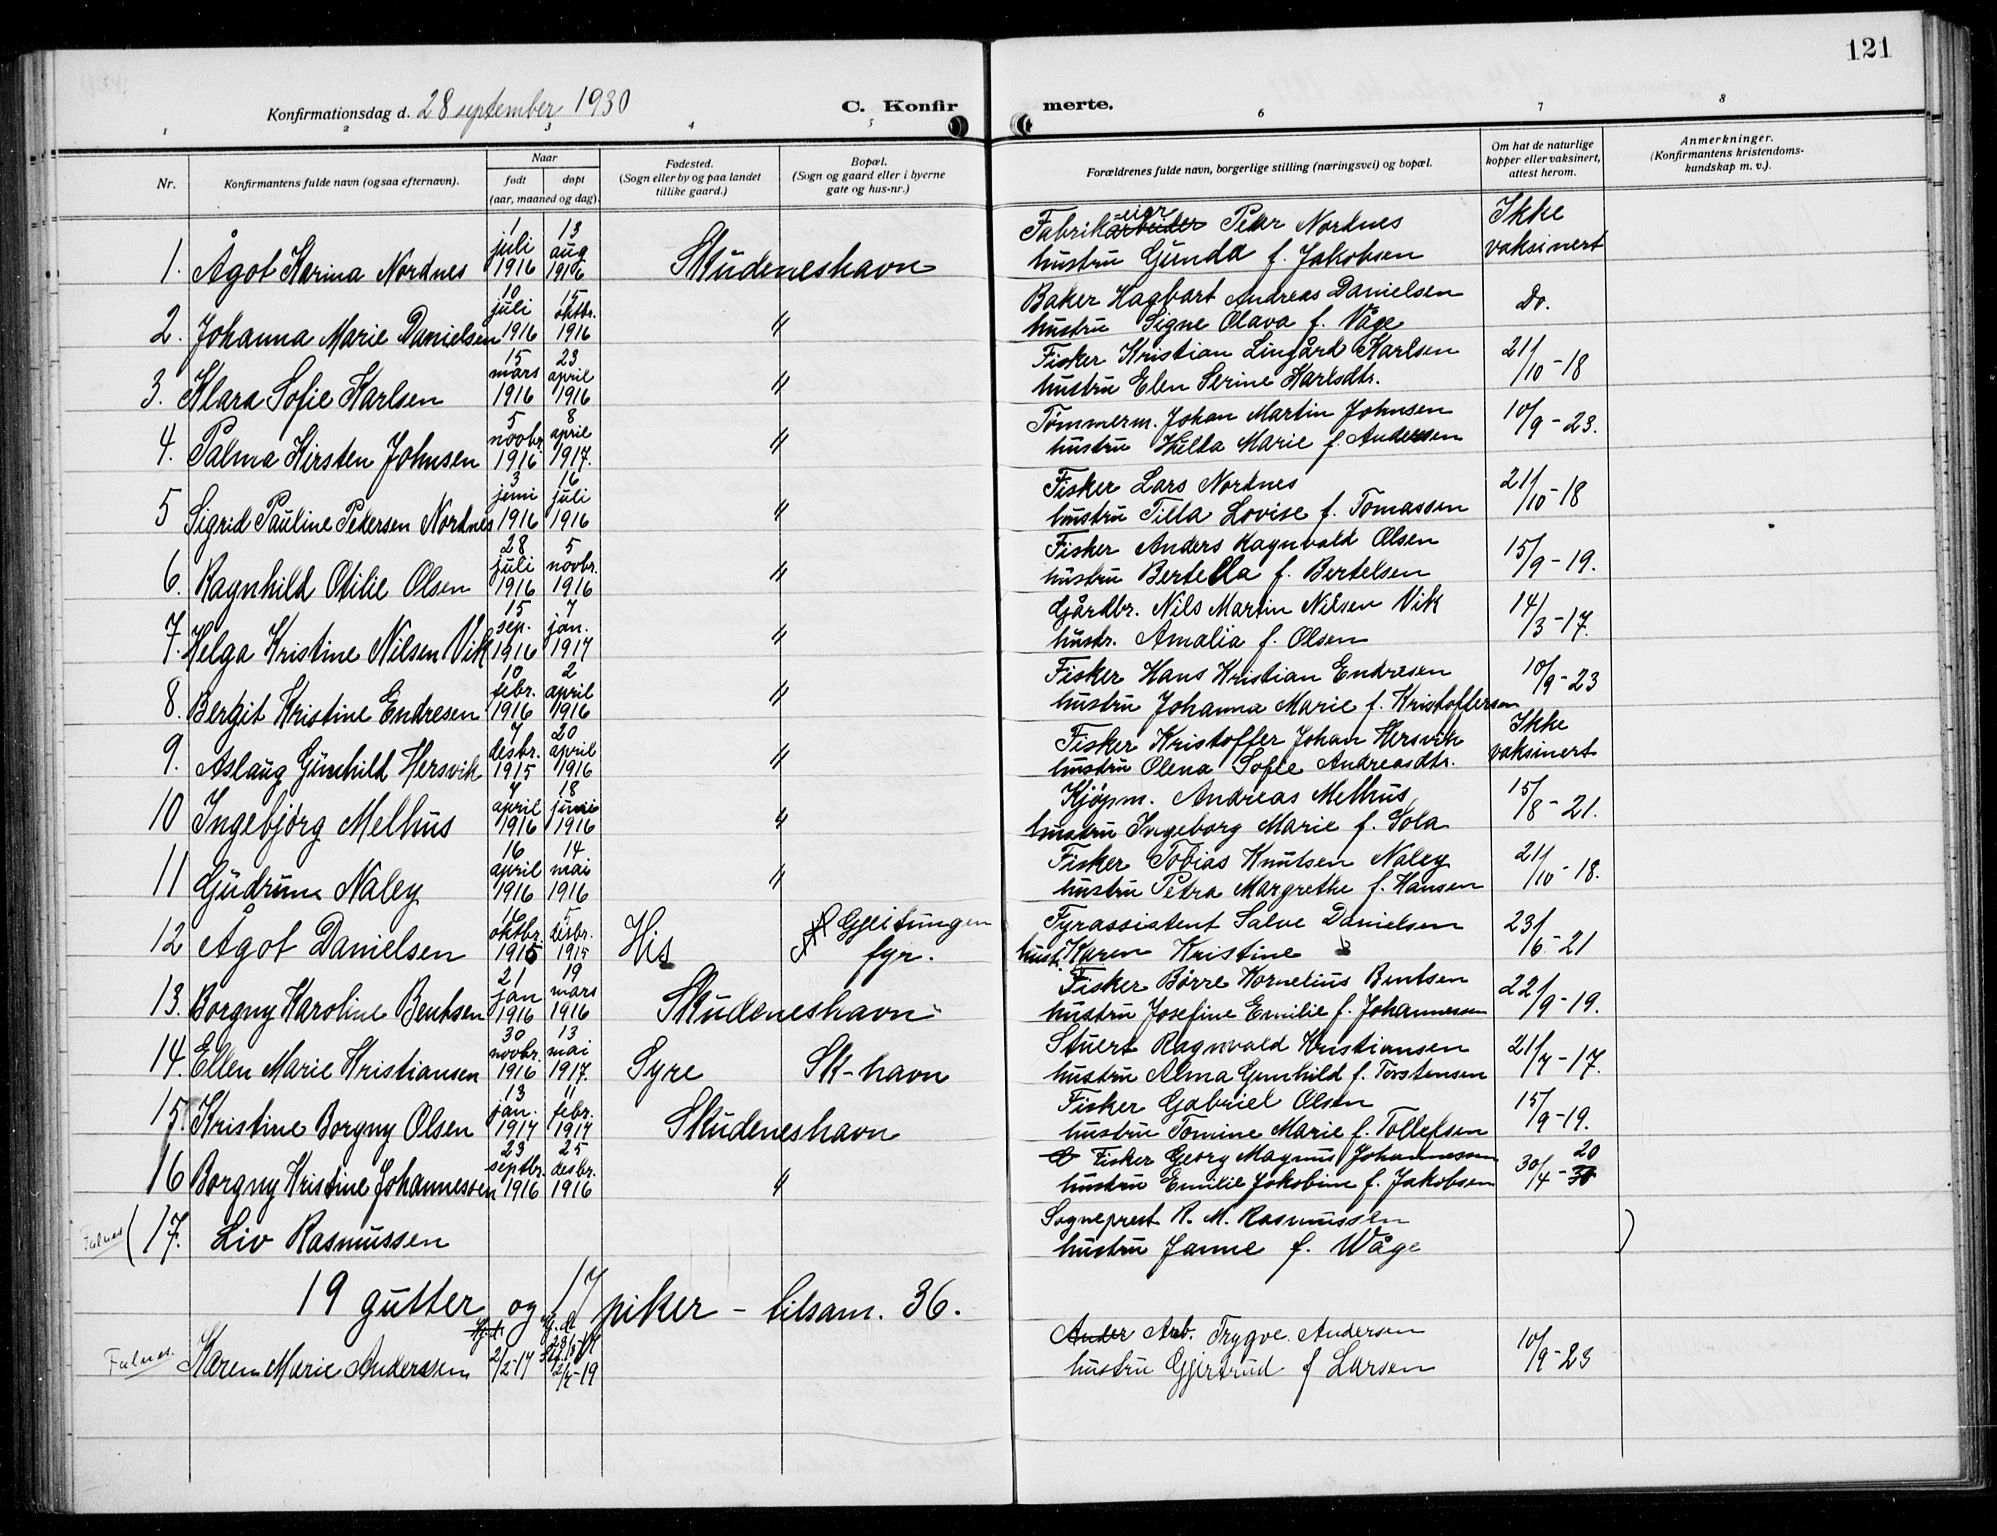 121
Konfirmationsdag d. 28 september 1930
C. Konfirmerte.
1 2 3 4 5 6 7 8
Nr.
Konfirmantens fulde navn (ogsaa efternavn).
Naar
født
døpt
(aar, maaned og dag).
Fødested.
(Sogn eller by og paa landet
tillike gaard.)
Bopæl.
(Sogn og gaard eller i byerne
gate og hus-nr.)
Forældrenes fulde navn, borgerlige stilling (næringsvei) og bopæl.
Om hat de naturlige
kopper eller vaksinert,
attest herom.
Anmerkninger.
(Konfirmantens kristendoms-
kundskap m. v.).
1. Ågot Karina Nordnes 1 juli 1916 13 aug 1916 Skudeneshavn Fabrikarbeider eier Peder Nordnes Ikke
hustru Gunda f. Jakobsen vaksinert
2. Johanna Marie Danielsen 10 juli 1916 15 oktbr. 1916 " Baker Hagbart Andreas Danielsen Do.
hustru Signe Olava f. Våge
3. Klara Sofie Karlsen 15 mars 1916 23 april 1916 " Fisker Kristian Lingård Karlsen 21/10-18
hustru Elen Serine Karlsdtr.
4. Palma Kirsten Johnsen 5 novbr 1916 8 april 1917. " Tømmerm. Johan Martin Johnsen 10/9-23.
hustru Hilla Marie f. Andersen
5 Sigrid Pauline Pedersen Nordnes 3 juni 1916 16 juli 1916 " Fisker Lars Nordnes 21/10-18
hustru Tilla Lovise f. Tomassen
6. Ragnhild Otilie Olsen 28 juli 1916 5 novbr. 1916 " Fisker Anders Ragnvald Olsen 15/9-19.
hustru Bertella f. Bertelsen
7. Helga Kristine Nilsen Vik 15 sep. 1916 7 jan. 1917 " Gårdbr. Nils Martin Nilsen Vik 14/3-17.
hustr. Amalia f. Olsen
8. Bergit Kristine Endresen 10 febr. 1916 2 april 1916 " Fisker Hans Kristian Endresen 10/9-23
hustru Johanna Marie f. Kristoffersen
9. Aslaug Gunhild Hersvik 7 desbr. 1915 20 april 1916 " Fisker Kristoffer Johan Hersvik Ikke
hustru Olena Sofie Andreasdtr. vaksinert
10 Ingebjørg Melhus 4 april 1916 18 juni 1916 " Kjøpm. Andreas Melhus 15/8-21.
hustru Ingeborg Marie f. Sola
11 Gudrun Naley 16 april 1916 14 mai 1916 " Fisker Tobias Knutsen Naley 21/10-18.
hustru Petra Margrethe f. Hansen
12 Ågot Danielsen oktbr. 1915 5 desbr. 1915 His Gjeitungen fyr. Fyrassistent Salve Danielsen 23/6-21
hustr. Karen Kristine
13. Borgny Karoline Bentsen 21 jan 1916 19 mars 1916 Skudeneshavn Fisker Børre Kornelius Bentsen 22/9-19.
hustru Josefine Emilie f. Johannessen
14. Ellen Marie Kristiansen 30 novbr. 1916 13 mai 1917. Syre Sk-havn Stuert Ragnvald Kristiansen 21/7-17.
hustru Alma Gunhild f. Torstensen
15. Kristine Borgny Olsen 13 jan. 1917 11 febr. 1917 Skudeneshavn Fisker Gabriel Olsen 15/9-19.
hustru Tomine Marie f. Tollefsen
16 Borgny Kristine Johannessen 23 septbr. 1916 25 desbr. 1916 " Fisker Georg Magnus Johannessen 30/4-20
hustru Emilie Jakobine f. Jakobsen
Falnes (17. Liv Rasmussen Sogneprest R. M. Rasmussen )
hustru Janne f. Wåge
19 gutter og 17 piker - tilsam. 36.
Falnes. Karen Marie Anderssen 2/2-17 Arb. Trygve Andersen 10/9-23
hustru Gjertrud f Larsen